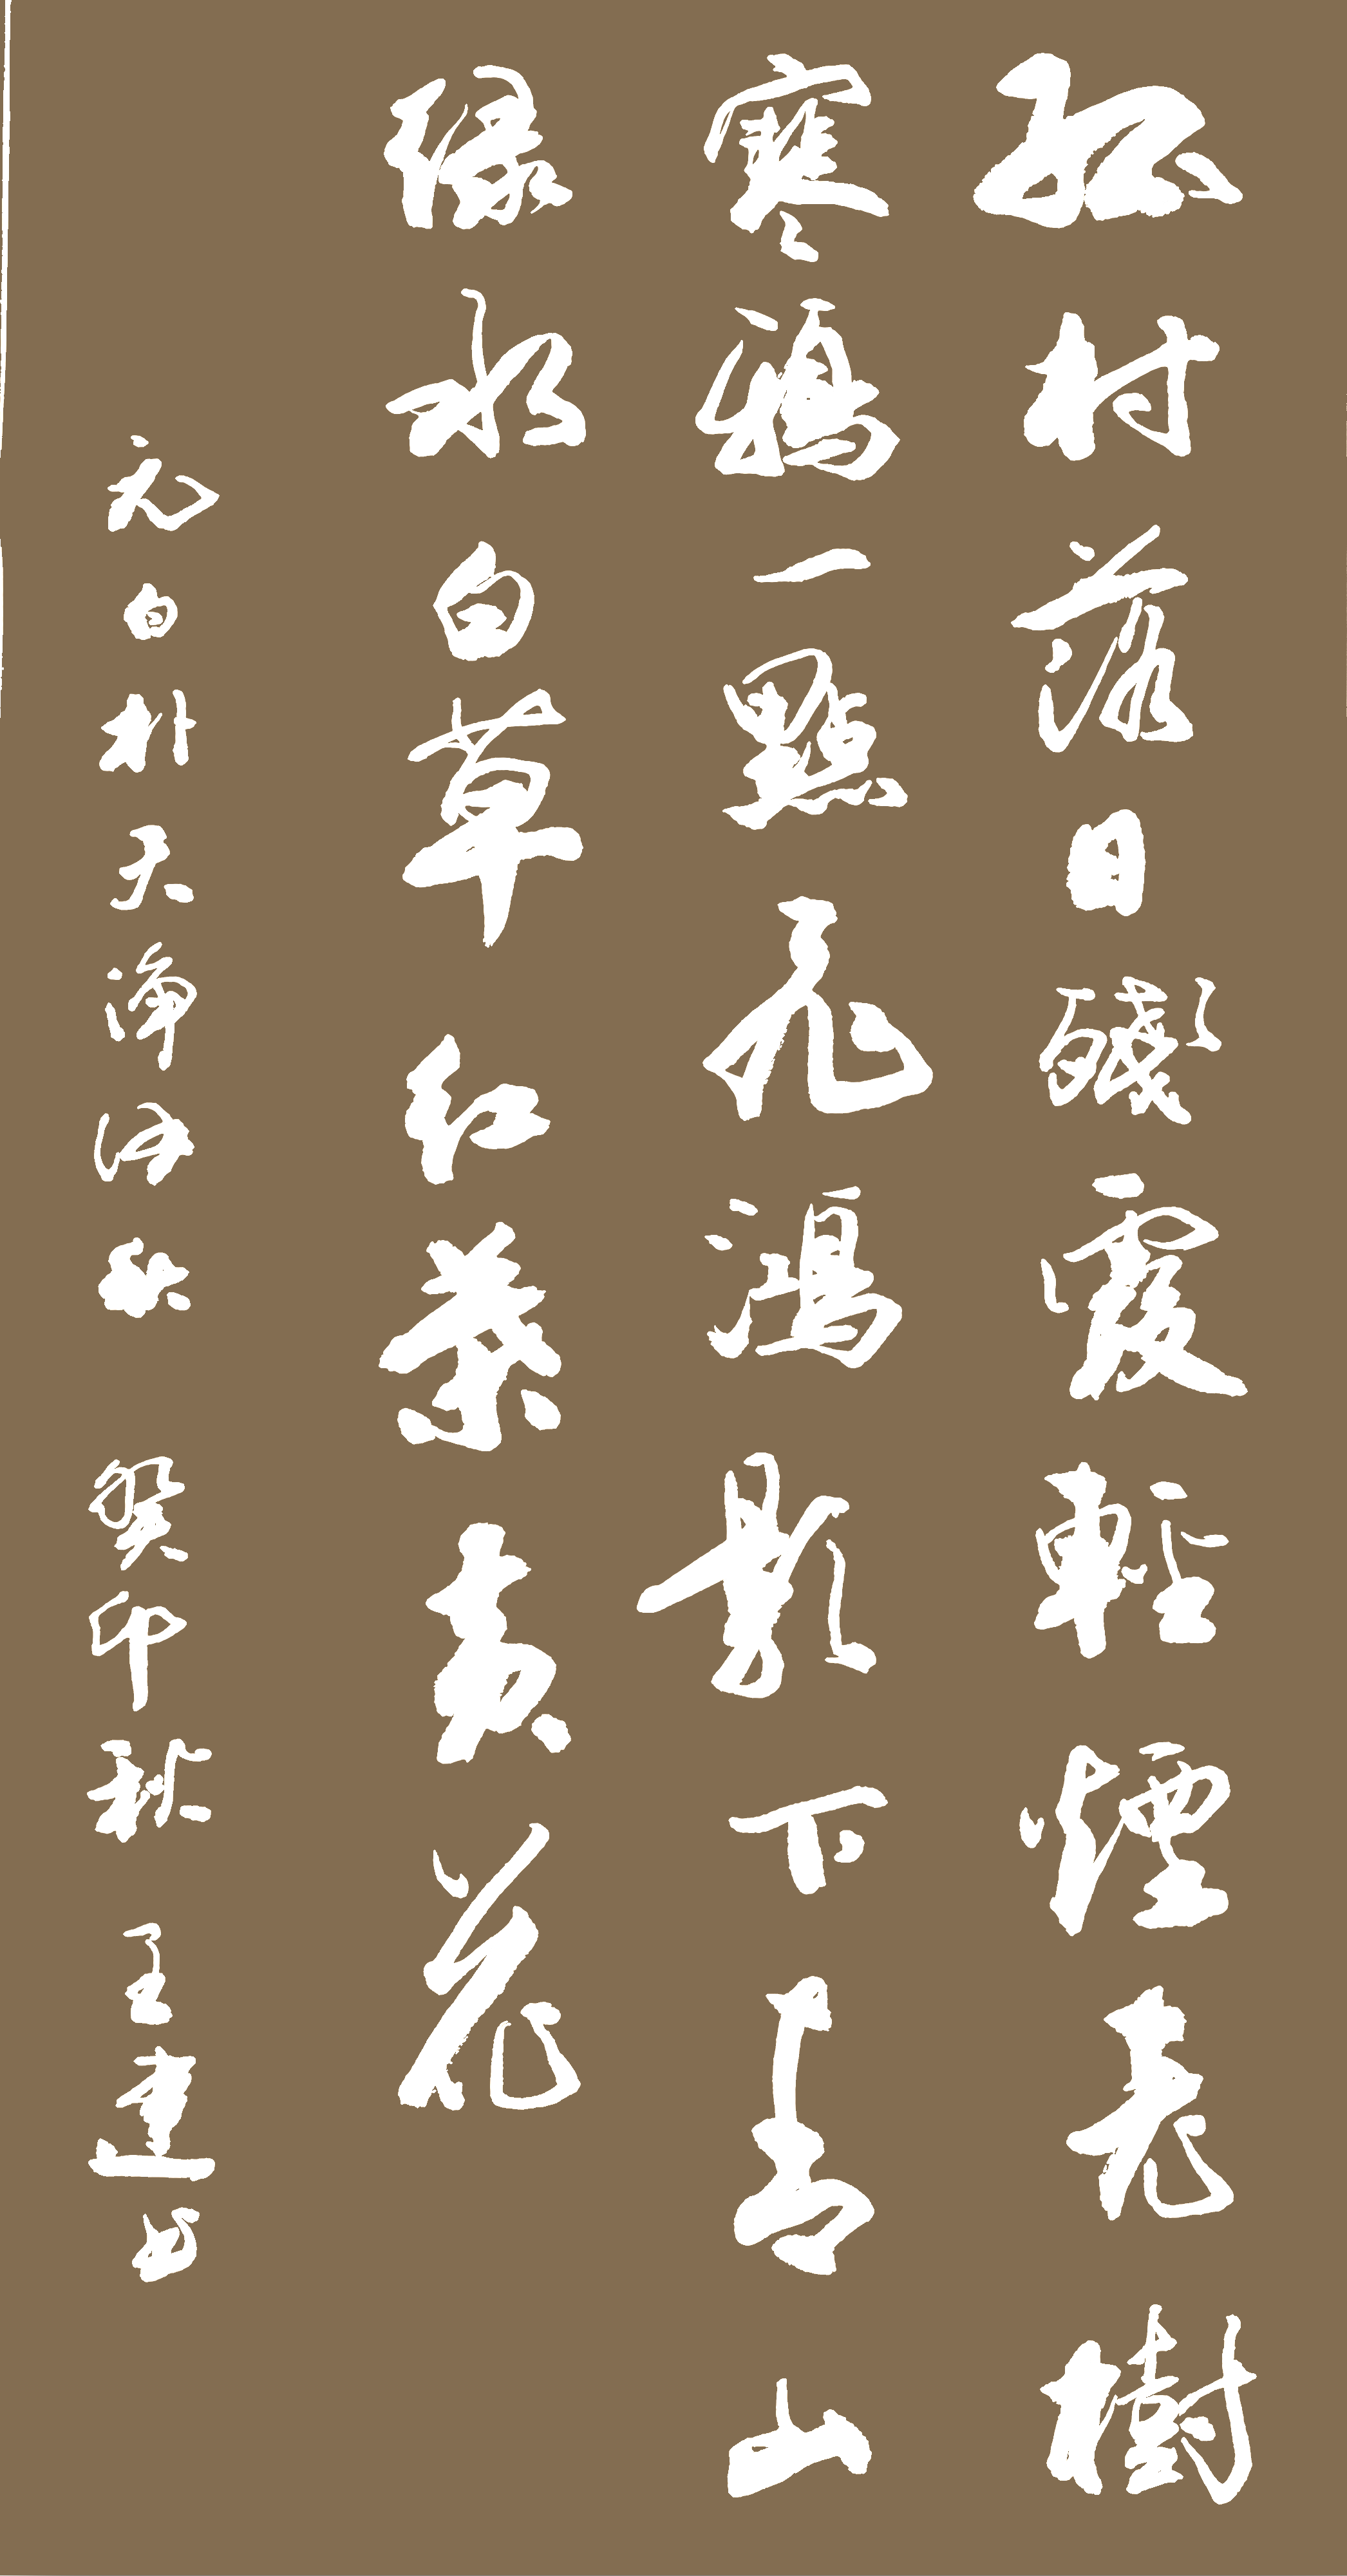 孤村落日殘霞輕煙老樹
寒鴉一點飛鴻影下青山
綠水白草红葉黃花
元白朴天淨沙秋 癸卯秋 王建书